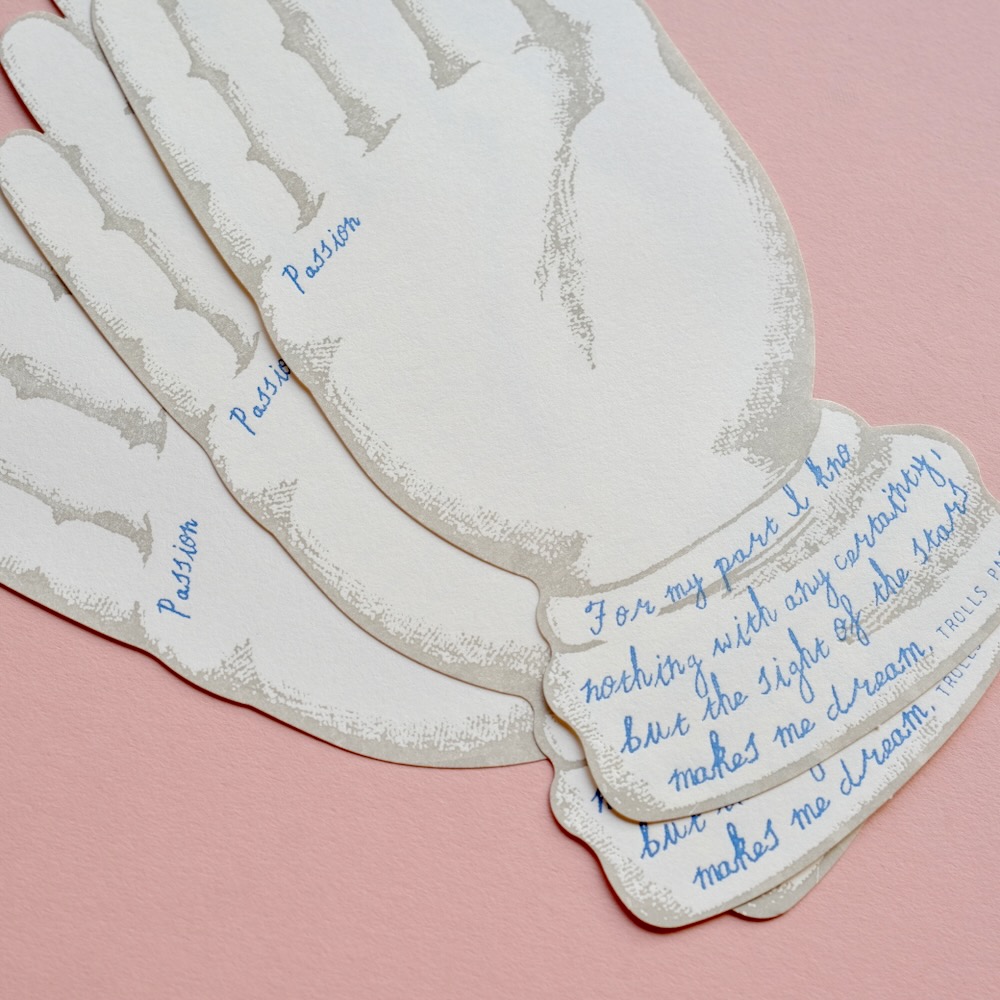 Passion
Passion
Passion
For my part I kno
nothing with any certainty,
but the sight of the stars
makes me dream.
TROLLS PA
but
makes me dream.
TROLLS